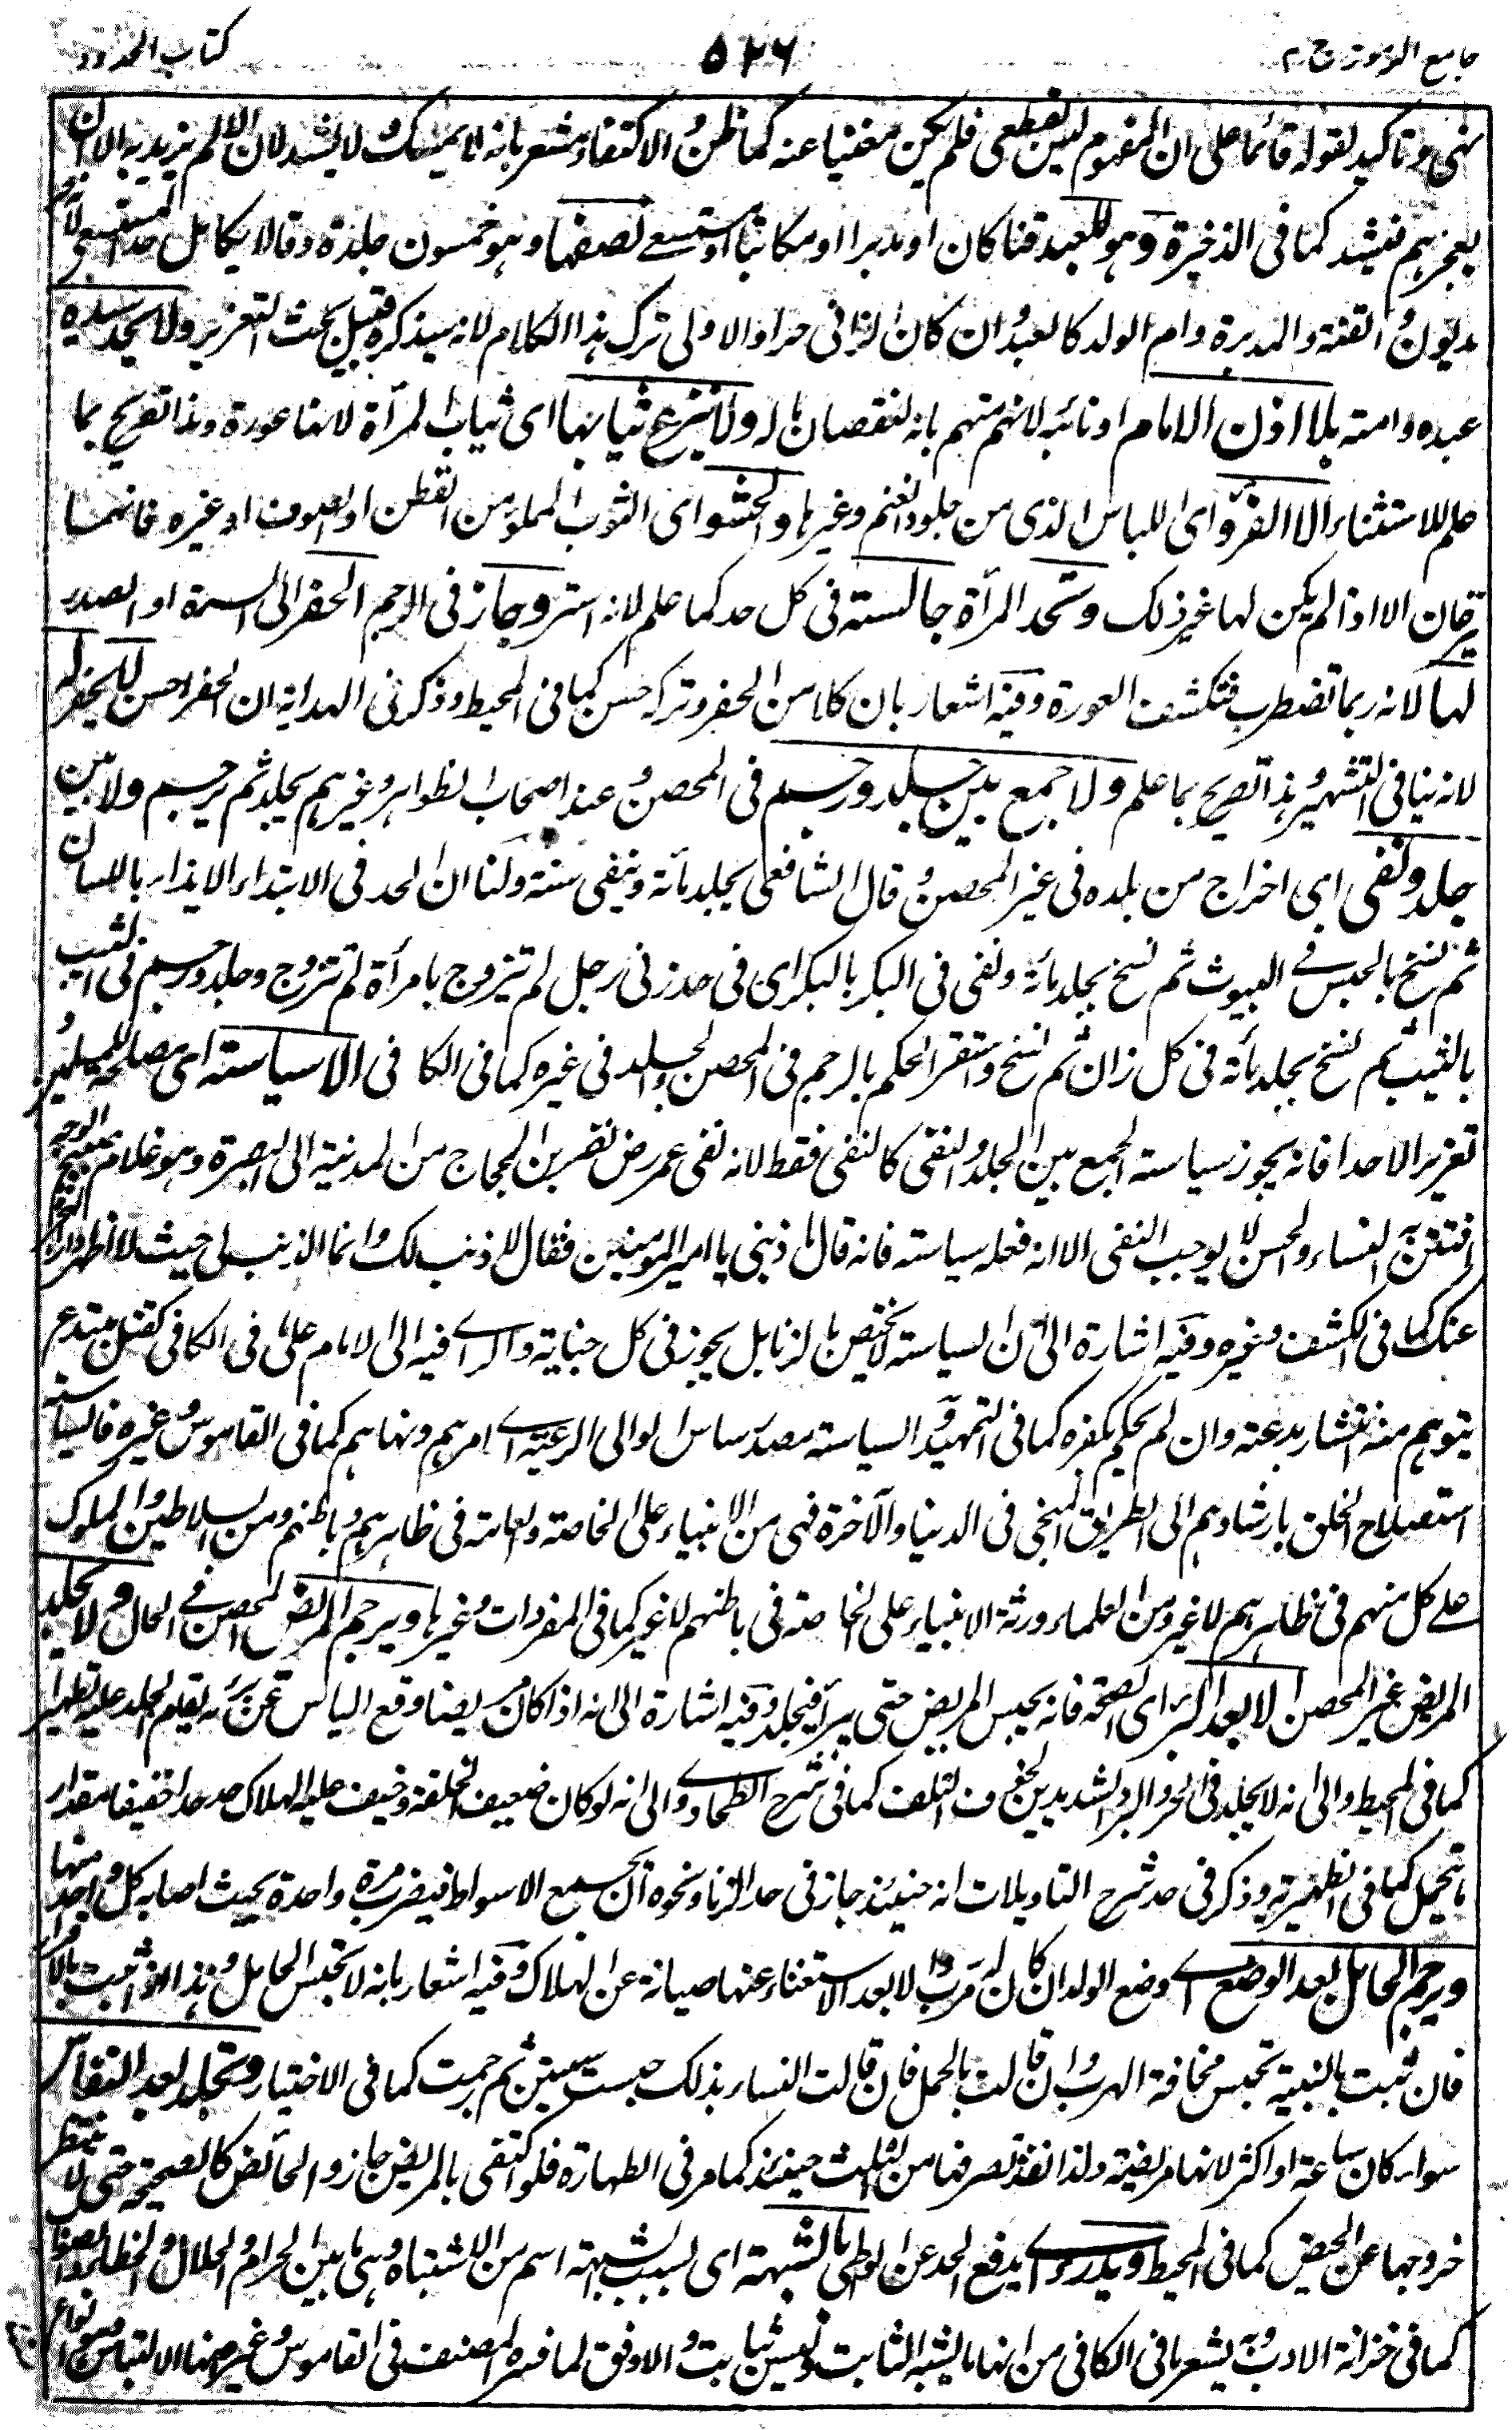 جامع الرموز ج ٢
٥٢٦
كتاب الحدود
نهى وتاكيد لقوله قائما على ان المفهوم ليس بقطعى فلم يكن مغنيا عنه كما ظن و الاكتفاء مشعر بانه لا يمسك و لا يشد لان الالم يزيد به الا ان
يعجزهم فيشد كما فى الذخيرة وهو للعبد قنا كان او مدبرا او مكاتبا او مستسعى نصفها وهو خمسون جلدة وقالا يكامل حد المستسعى لانه حر
مديون و القنة والمدبرة وام الولد كالعبد و ان كان الزانى حرا والاولى ترك هذا الكلام لانه سيذكره قبيل بحث التعزير ولا يحد سيده
عبده وامته بلا اذن الامام او نائبه لانهم متهم بانه لنقصان ماله ولا ينزع ثيابها اى ثياب المرأة لانها عورة وهذا تصريح بما
علم للاستثناء الا الفرو اى اللباس الذى من جلود الغنم وغيرها والحشو اى الثوب المملو من القطن او الصوف او غيره فانهما
ينزعان الا اذا لم يكن لها غير ذلك وتحد المرأة جالسة فى كل حد كما علم لانه استر وجاز فى الرجم الحفر الى السرة او الصدر
لها لانه ربما تضطرب فتكشف العورة وفيه اشعار بان كلا من الحفر وتركه حسن كما فى المحيط وذكر فى الهداية ان الحفر احسن لا يحفر له
لانه ينافى التشهير و هذا تصريح بما علم ولا جمع بين جلد ورجم فى المحصن و عند اصحاب الظواهر وغيرهم يجلد ثم يرجم ولا بين
جلد ونفى اى اخراج من بلده فى غير المحصن و قال الشافعى يجلد مائة وينفى سنة ولنا ان الحد فى الابتداء الايذاء باللسان
ثم نسخ بالحبس فى البيوت ثم نسخ بجلد مائة ونفى فى البكر بالبكر اى فى حد زنى رجل لم يتزوج بامرأة لم تتزوج وجلد ورجم فى الثيب
بالثيب ثم نسخ بجلد مائة فى كل زان ثم نسخ واستقر الحكم بالرجم فى المحصن والجلد فى غيره كما فى الكافى الا سياسة اى مصلحة للمسلمين و
تعزيرا لا حدا فانه يجوز سياسة الجمع بين الجلد و النفى كالنفى فقط لانه نفى عمر رض نصر بن الحجاج من المدينة الى البصرة وهو غلام صبيح الوجه
افتتن به النساء و الحسن لا يوجب النفى الا انه فعله سياسة فانه قال ما ذنبى يا امير المؤمنين فقال لا ذنب لك وانما الذنب لى حيث لا اطهر دار الهجرة
عنك كما فى الكشف وغيره وفيه اشارة الى ان السياسة لا تختص بالزنا بل يجوز فى كل جناية والراى فيه الى الامام على ما فى الكافى كقتل مبتدع
يتوهم منه انتشار بدعته وان لم يحكم بكفره كما فى التمهيد و السياسة مصدر ساس الوالى الرعية اى امرهم ونهاهم كما فى القاموس وغيره فالسياسة
استصلاح الخلق بارشادهم الى الطريق المنجى فى الدنيا والآخرة فهى من الانبياء على الخاصة والعامة فى ظاهرهم وباطنهم ومن السلاطين والملوك
على كل منهم فى ظاهرهم لا غير ومن العلماء ورثة الانبياء على الخاصة فى باطنهم لا غير كما فى المفردات وغيرها ويرجم المريض المحصن فى الحال ولا يجلد
المريض غير المحصن الا بعد البرء اى الصحة فانه يحبس المريض حتى يبرأ فيجلد وفيه اشارة الى انه اذا كان مريضا وقع الياس عن برئه يقام الجلد عليه تطهيرا
كما فى المحيط والى انه لا يجلد فى الحر و البرد الشديدين لخوف التلف كما فى شرح الطحاوى والى انه لو كان ضعيف الخلقة وخيف عليه الهلاك حد حدا خفيفا مقدار
ما يتحمل كما فى الظهيرية وذكر فى حد شرح التاويلات انه حينئذ جاز فى حد الزنا ونحوه ان يجمع الاسواط فيضرب مرة واحدة بحيث اصابه كل واحد منها
ويرجم الحامل بعد الوضع اى وضع الولد ان كان له مرب و الا بعد الاستغناء عنها صيانة عن الهلاك وفيه اشعار بانه لا تحبس الحامل و هذا اذا ثبت بالاقرار
فان ثبت بالبينة تحبس مخافة الهرب و ان قالت بالحمل فان قالت النساء بذلك حبست سنتين ثم رجمت كما فى الاختيار وتجلد بعد النفاس
سواء كان ساعة او اكثر لانها مريضة ولذا نفذ تصرفها من الثلث حينئذ كما مر فى الطهارة فلو اكتفى بالمريض جاز والحائض كالصحيحة حتى لا ينتظر
خروجها عن الحيض كما فى المحيط ويدرء اى يدفع الحد عن الواطى بالشبهة اى بسبب الشبهة اسم من الاشتباه وهى ما بين الحرام والحلال والخطاء والصواب
كما فى خزانة الادب و به يشعر ما فى الكافى من انها ما يشبه الثابت وليس بثابت و الاوفق لما فسره المصنف فى القاموس وغيره انها الالتباس